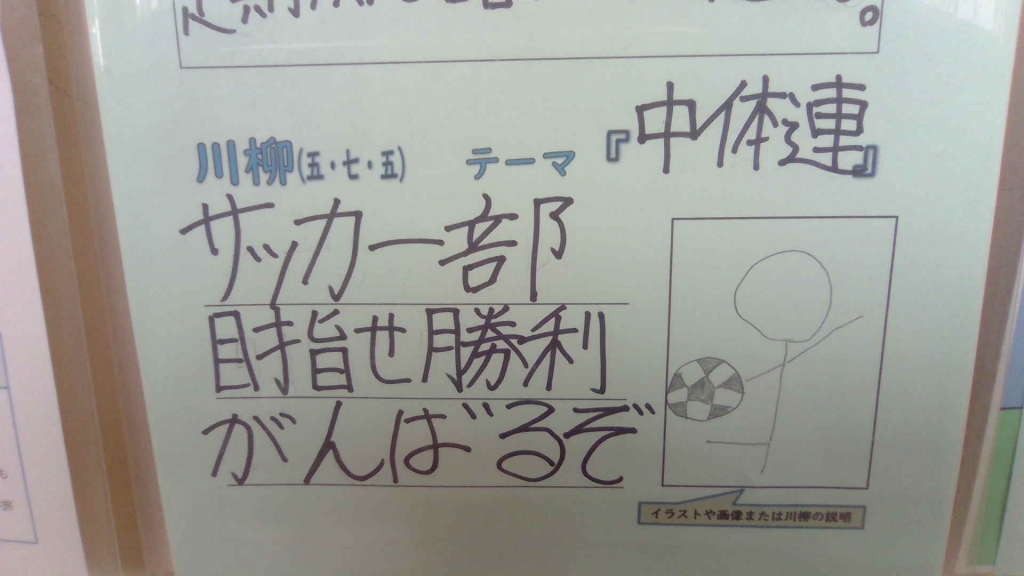 川柳(五・七・五) テーマ 『中体連』
サッカー部
目指せ勝利
がんばるぞ
イラストや画像または川柳の説明